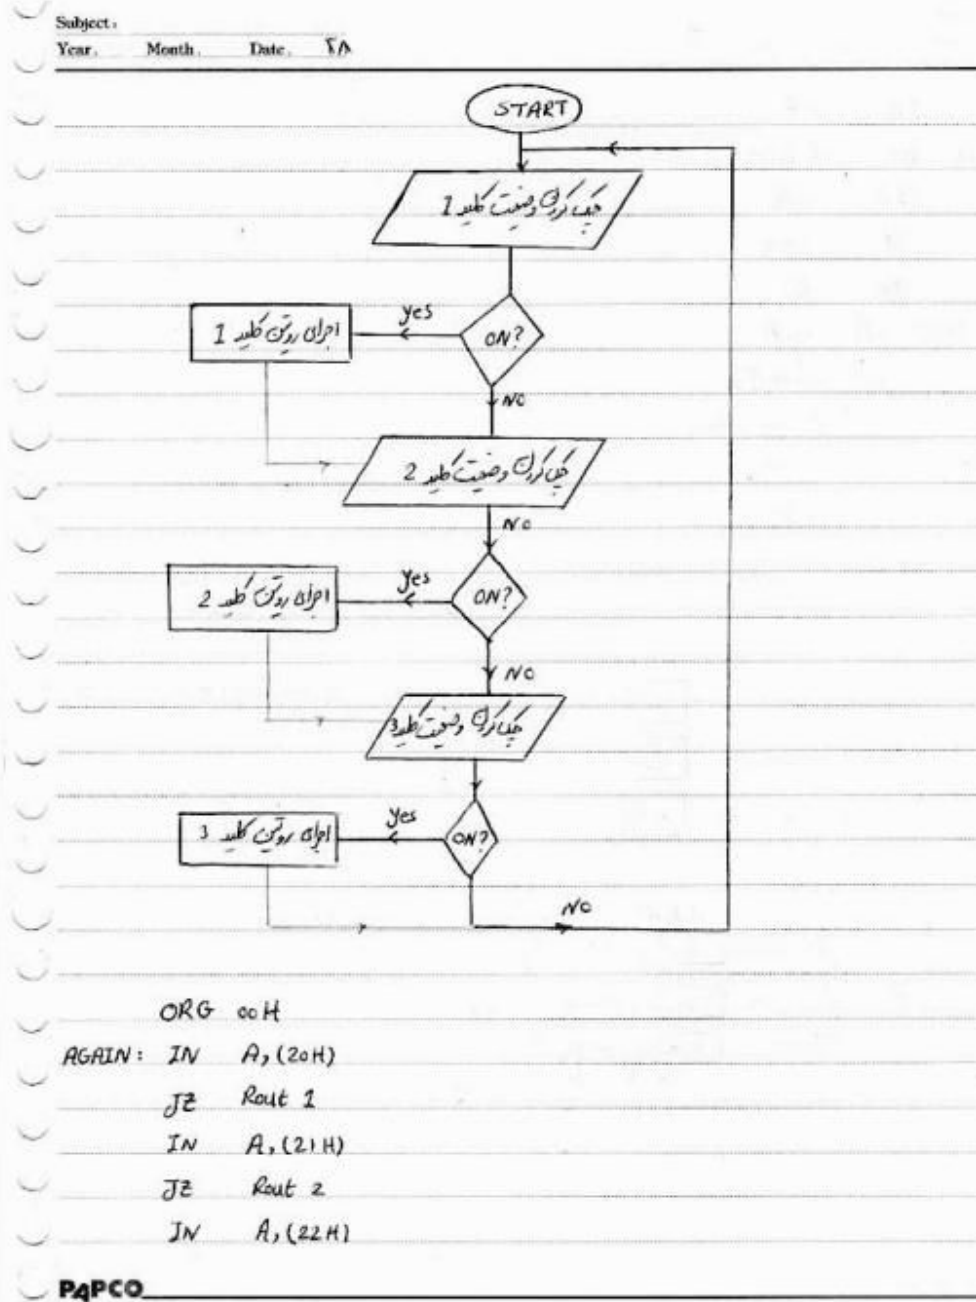 Subject:
Year. Month. Date. ۲۸
START
چک کردن وضعیت کلید 1
ON?
yes
اجرای روتین کلید 1
NO
چک کردن وضعیت کلید 2
NO
ON?
yes
اجرای روتین کلید 2
NO
چک کردن وضعیت کلید 3
ON?
yes
اجرای روتین کلید 3
NO
ORG 00H
AGAIN: IN A,(20H)
JZ Rout 1
IN A,(21H)
JZ Rout 2
IN A,(22H)
PAPCO